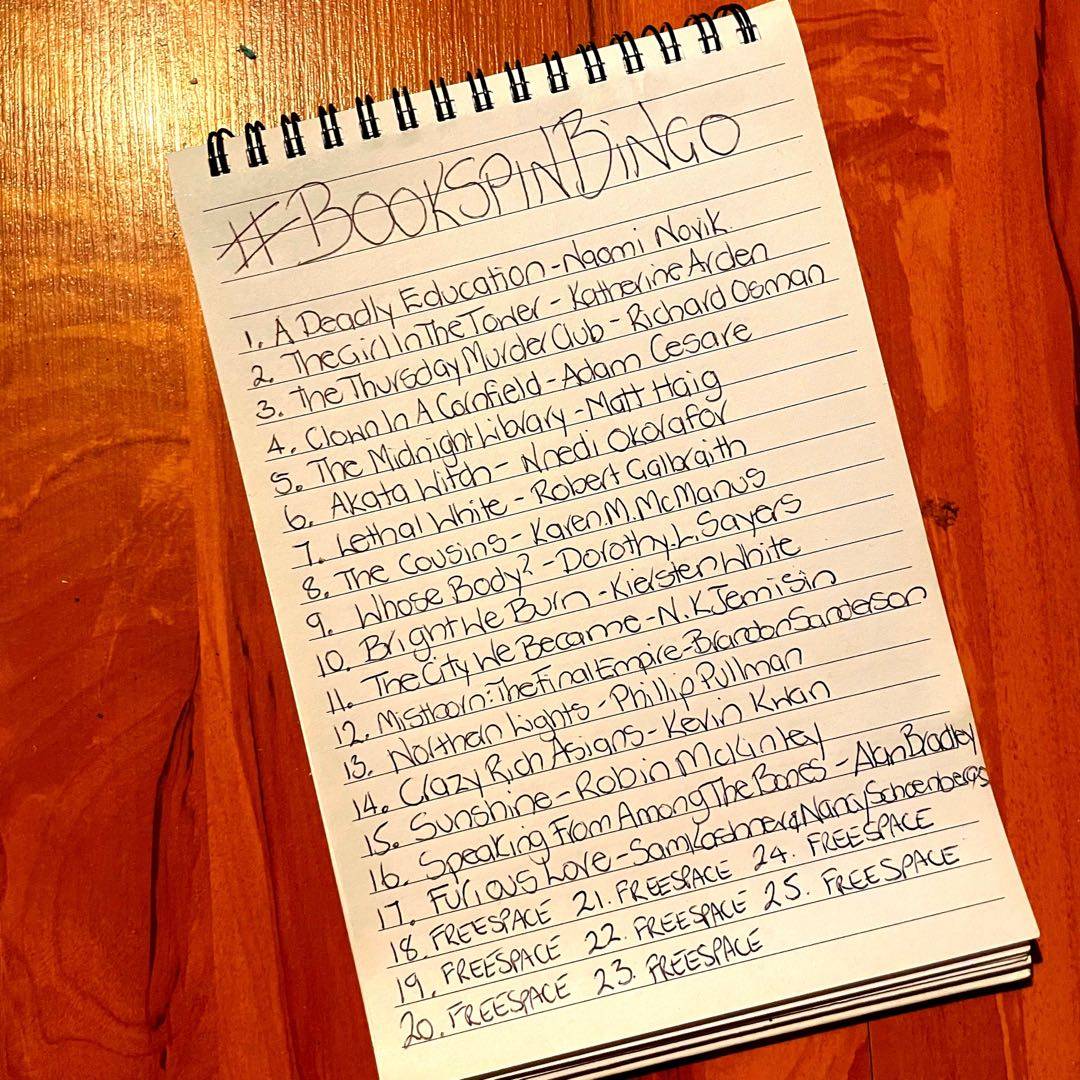 #BOOKSPINBINGO
1. A Deadly Education - Naomi Novik
2. The Girl In The Tower - Katherine Arden
3. The Thursday Murder Club - Richard Osman
4. Clown In A Cornfield - Adam Cesare
5. The Midnight Library - Matt Haig
6. Akata Witch - Nnedi Okorafor
7. Lethal White - Robert Galbraith
8. The Cousins - Karen.M.McManus
9. Whose Body? - Dorothy.L.Sayers
10. Bright We Burn - Kiersten White
11. The City We Became - N.K Jemisin
12. Mistborn: The Final Empire - Brandon Sanderson
13. Northern Lights - Phillip Pullman
14. Crazy Rich Asians - Kevin Kwan
15. Sunshine - Robin McKinley
16. Speaking From Among The Bones - Alan Bradley
17. Furious Love - Sam Kashner & Nancy Schoenberger
18. FREESPACE 21. FREESPACE 24. FREESPACE
19. FREESPACE 22. FREESPACE 25. FREESPACE
20. FREESPACE 23. FREESPACE